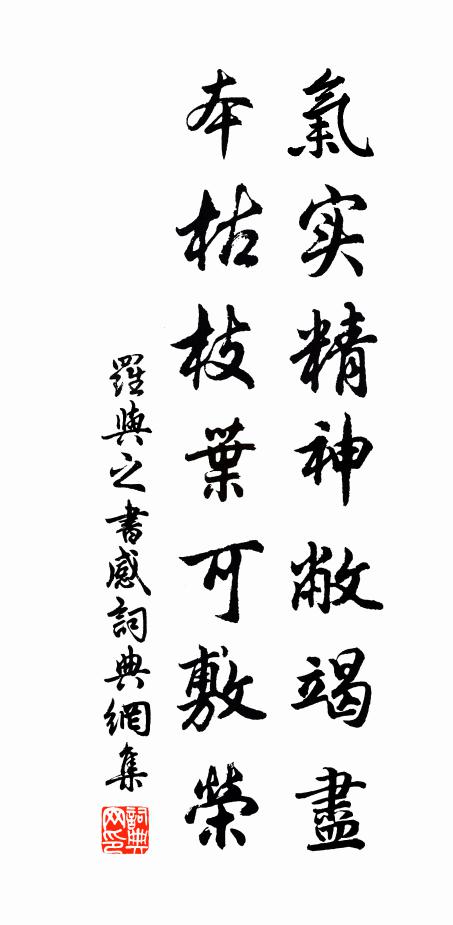 氣实精神敝竭盡
本枯枝葉可敷榮
羅與之書感詞典網集
詞典网印